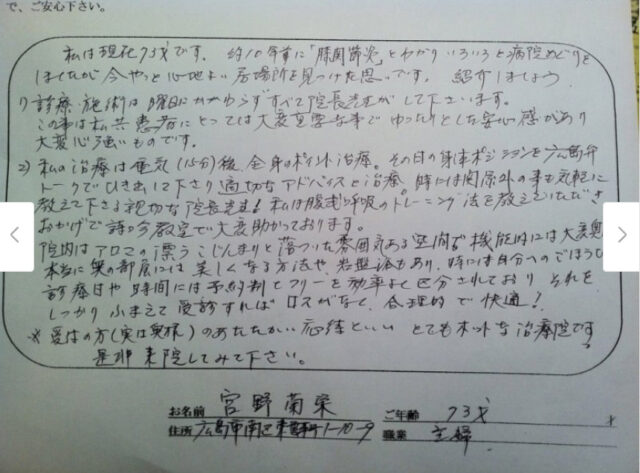 で、ご安心下さい。
私は現在73才です。約10年前に「膝関節炎」とわかりいろいろと病院めぐりを
しましたが今やっと心地よい居場所を見つけた思いです。紹介しましょう
1) 診療・施術は曜日にかかわらずすべて院長先生がして下さいます。
この事は私共患者にとっては大変重要な事でゆったりとした安心感があり
大変心強いものです。
2) 私の治療は電気(15分)後、全身ポイント治療。その日の身体ポジションを広島弁
トークでひき出して下さり適切なアドバイスと治療。時には関係外の事も気軽に
教えて下さる親切な院長先生!私は腹式呼吸のトレーニング法を教えていただき
おかげで詩吟教室で大変助かっております。
院内はアロマの漂うこじんまりと落ついた雰囲気ある空間で機能的には大変
奥の部屋には美しくなる方法や、岩盤浴もあり、時には自分へのごほうび
診療日や時間には予約制とフリーを効率よく区分されており それを
しっかりふまえて受診すればロスがなく、合理的で快適!
※受付の方(実は奥様)のあたたかい応待といい とてもホットな治療院です
是非来院してみて下さい。
お名前 宮野南栄 ご年齢 73才 才
住所 広島市南区 1-10-9 職業 主婦